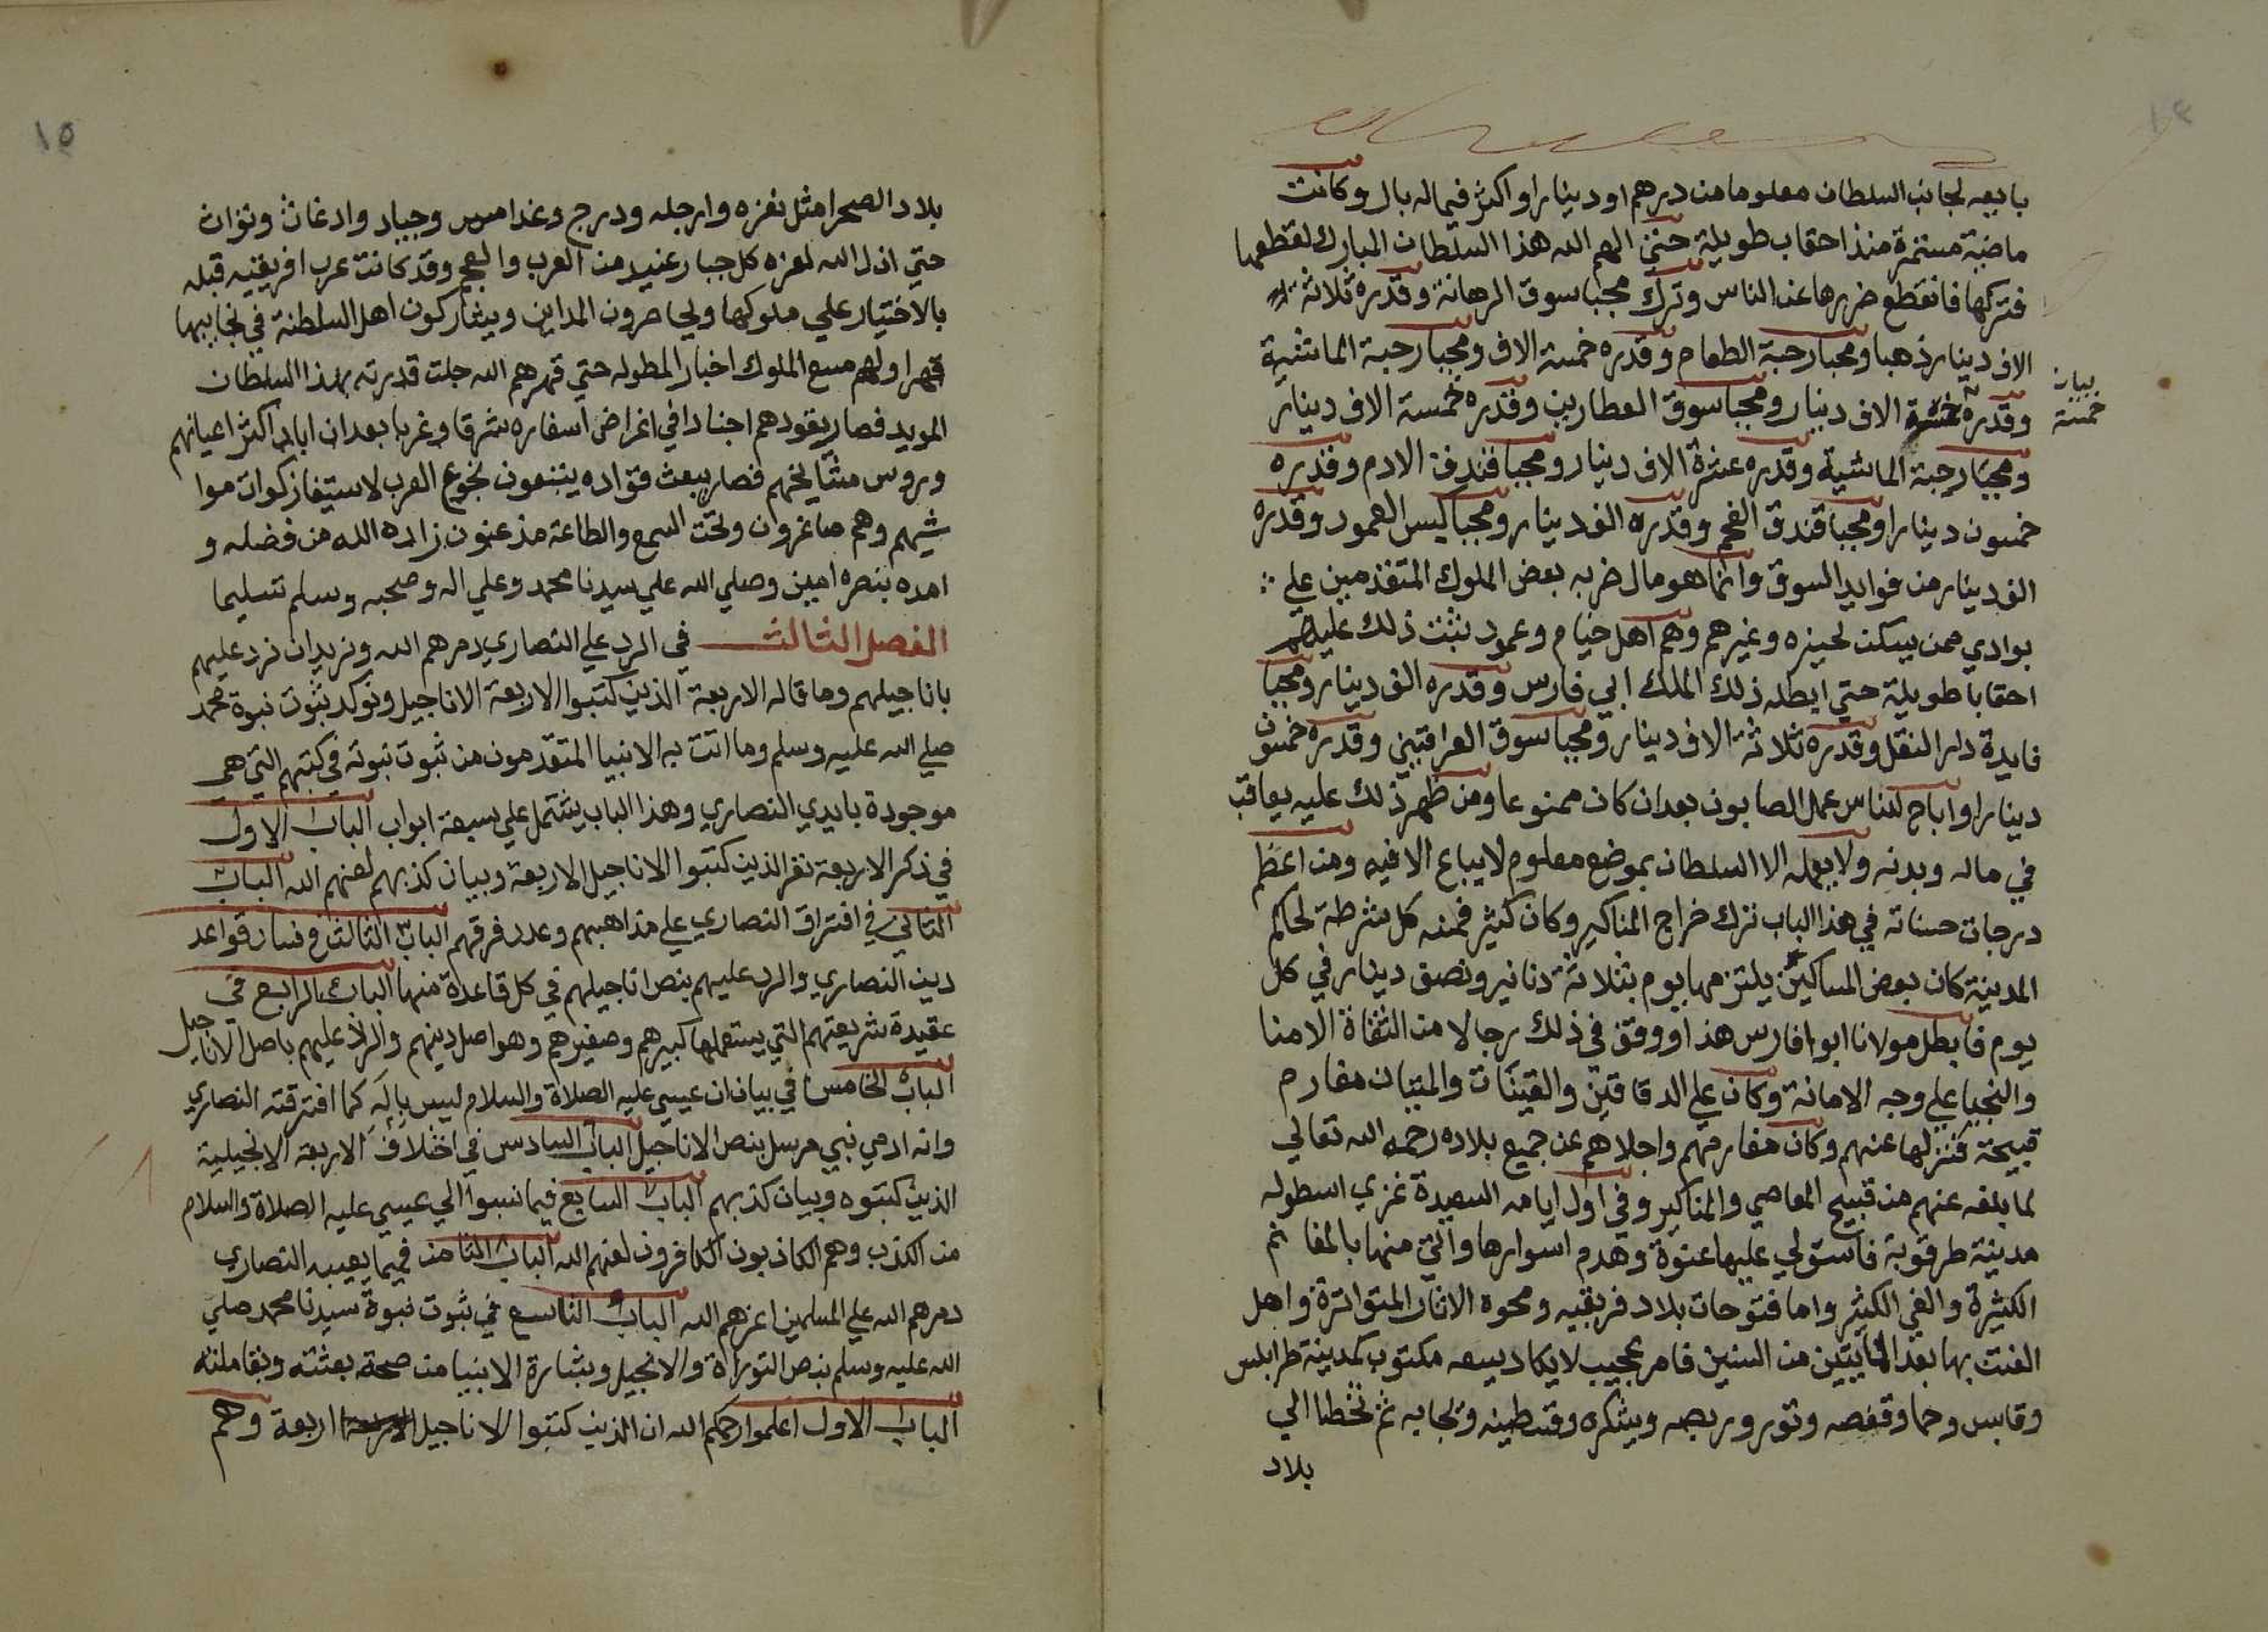 ١٤
بايعه لجانب السلطان معلوما من درهم او دينارا او اكثر فيما له بال وكانت
ماضية مستمرة منذ احقاب طويلة حتى الهم الله هذا السلطان المبارك لقطعها
فتركها فانقطع ضررها عن الناس وترك مجبا سوق الرهانة وقدره ثلاثة
الاف دينار ذهبا ومجبا رحبة الطعام وقدره خمسة الاف ومجبا رحبة الماشية
وقدره خمسة الاف دينار ومجبا سوق العطارين وقدره خمسة الاف دينار
بيان
خمسة
ومجبا رحبة الماشية وقدره عشرة الاف دينار ومجبا فندق الادم وقدره
خمسون دينارا ومجبا فندق الفحم وقدره الف دينار ومجبا كيس العمود وقدره
الف دينار من فوايد السوق وانما هو مال ضربه بعض الملوك المتقدمين علي
بوادي ممن يسكن لحيزه وغيرهم وهم اهل خيام وعمود بثبت ذلك عليهم
احقابا طويلة حتي ابطله ذلك الملك ابي فارس وقدره الف دينار ومجبا
فايدة دار النقل وقدره ثلاثة الاف دينار ومجبا سوق العرافيني وقدره خمسون
دينارا واباح للناس عمل الصابون بعد ان كان ممنوعا ومن ظهر ذلك عليه يعاقب
في ماله وبدنه ولا يعمله الا السلطان بموضع معلوم لا يباع الا فيه ومن اعظم
درجات حسناته في هذا الباب ترك خراج المناكير وكان كثير فمنه كل شرطة لحاكم
المدينة كان بعض المساكين يلتزمها يوم بثلاثة دنانير ونصف دينار في كل
يوم فابطل مولانا ابوا فارس هذا ووقف في ذلك رجالا من الثقاة الامنا
والنجبا علي وجه الامانة وكان علي الدقاقين والقينات والمتيان مغارم
قبيحة فنزلها عنهم وكان مغارمهم واجلاهم عن جميع بلاده رحمه الله تعالي
لما بلغه عنهم من قبيح المعاصي والمناكير وفي اول ايامه السعيدة غزي اسطوله
مدينة طرقوبة فاستولي عليها عنوة وهدم اسوارها واتي منها بالمغانم
الكثيرة والفي الكثير واما فتوحات بلاد فريقيه ومحوه الاثار المتواترة واهل
الفتن بها بعد المايتين من السنين فامر عجيب لا يكاد يسعه مكتوب كمدينة طرابلس
وقابس وحما وقفصه وتور وريصه وبشكره وقسطينه وبجايه ثم تخطا الي
بلاد
١٥
بلاد الصحرا مثل نفزه وارجله ودرج وغدامس وجباد وادغاث وتوزان
حتي اذل الله لعزه كل جبار عنيد من العرب والعجم وقد كانت عرب افريقيه قبله
بالاختيار علي ملوكها ويحاصرون المداين ويشاركون اهل السلطنة في نجابيها
قهرا ولهم مع الملوك اخبار المطوله حتي قهرهم الله جلت قدرته بهذا السلطان
المويد فصار يقودهم اجنادا في اغراض اسفاره شرقا وغربا بعد ان اباد اكثر اعيانهم
وروس مشايخهم فصار يبعث قواده ينتبعون نجوع العرب لاستيفا زكوات موا
شيهم وهم صاغرون وتحت السمع والطاعة مذعنون زاده الله من فضله و
امده بنصره امين وصلي الله علي سيدنا محمد وعلي اله وصحبه وسلم تسليما
الفصل الثالث في الرد علي النصاري دمرهم الله ونريد ان نرد عليهم
باناجيلهم وما قاله الاربعة الذين كتبوا الاربعة الاناجيل ونوكد بثبوت نبوة محمد
صلي الله عليه وسلم وما اتت به الانبيا المتقدمون من ثبوت نبوته في كتبهم التي هي
موجودة بايدي النصاري وهذا الباب يشتمل علي سبعة ابواب الباب الاول
في ذكر الاربعة نفر الذين كتبوا الاناجيل الاربعة وبيان كذبهم لعنهم الله الباب
الثاني في افتراق النصاري علي مذاهبهم وعدد فرقهم الباب الثالث في فساد قواعد
دين النصاري والرد عليهم بنص اناجيلهم في كل قاعدة منها الباب الرابع في
عقيدة شريعتهم التي يستعملها كبيرهم وصغيرهم وهو اصل دينهم والرد عليهم باصل الاناجيل
الباب الخامس في بيان ان عيسي عليه الصلاة والسلام ليس باله كما افترقته النصاري
وانه ادمي نبي مرسل بنص الاناجيل الباب السادس في اختلاف الاربعة الانجيلية
الذين كتبوه وبيان كذبهم الباب السابع فيما نسبوا الي عيسي عليه الصلاة والسلام
من الكذب وهم الكاذبون الكافرون لعنهم الله الباب الثامن فيما يعيبه النصاري
دمرهم الله علي المسلمين اعزهم الله الباب التاسع في ثبوت نبوة سيدنا محمد صلي
الله عليه وسلم بنص التوراة والانجيل وبشارة الانبيا من صحة بعثته وبقا ملته
الباب الاول اعلموا رحمكم الله ان الذين كتبوا الاناجيل اربعة وهم